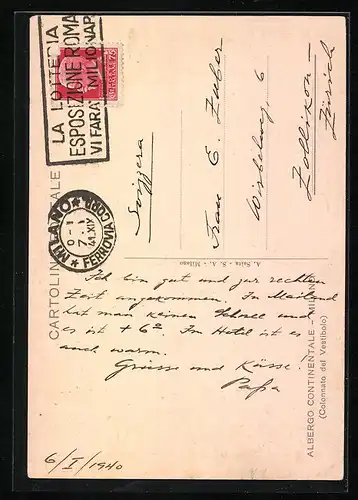 LA LOTTERIA
ESPOSIZIONE ROMA
VI FARÀ MILIONARI
CENT. 75
MILANO
FERROVIA CORR.
9 - 1
7 - 1
41.XIX
CARTOLINA POSTALE
Svizzera
Frau E. Zuber
Wirbelweg, 6
Zollikon -
Zürich
A. Scita - S. A. - Milano
ALBERGO CONTINENTALE - MILANO
(Colonnato del Vestibolo)
Ich bin gut und zur rechten
Zeit angekommen. In Mailand
hat man keinen Schnee und
es ist + 6°. Im Hotel ist es
auch warm.
Grüsse und Küsse!
Papa
6/I/1940